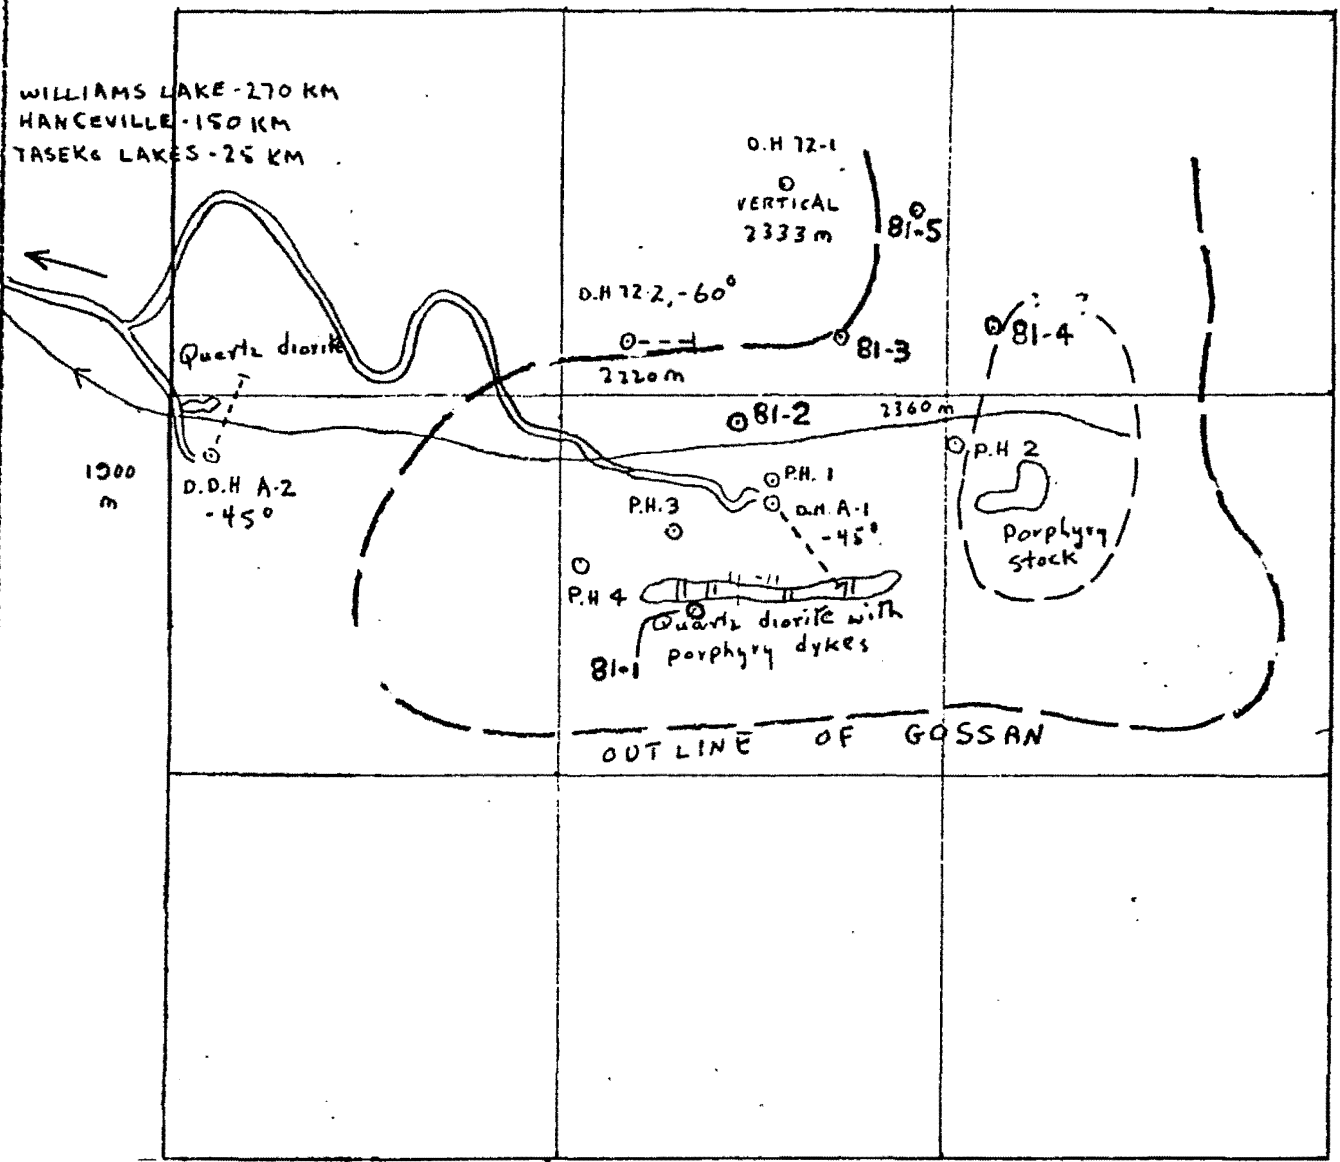 WILLIAMS LAKE - 270 KM
HANCEVILLE - 150 KM
TASEKO LAKES - 25 KM
D.H 72-1
VERTICAL
2333 m
81-5
D.H 72-2, -60°
2220 m
81-3
? ?
81-4
Quartz diorite
81-2
2360 m
P.H 2
1900
m
D.D.H A-2
-45°
P.H. 1
P.H. 3
D.H. A-1
-45°
Porphyry
stock
P.H 4
Quartz diorite with
porphyry dykes
81-1
OUTLINE OF GOSSAN